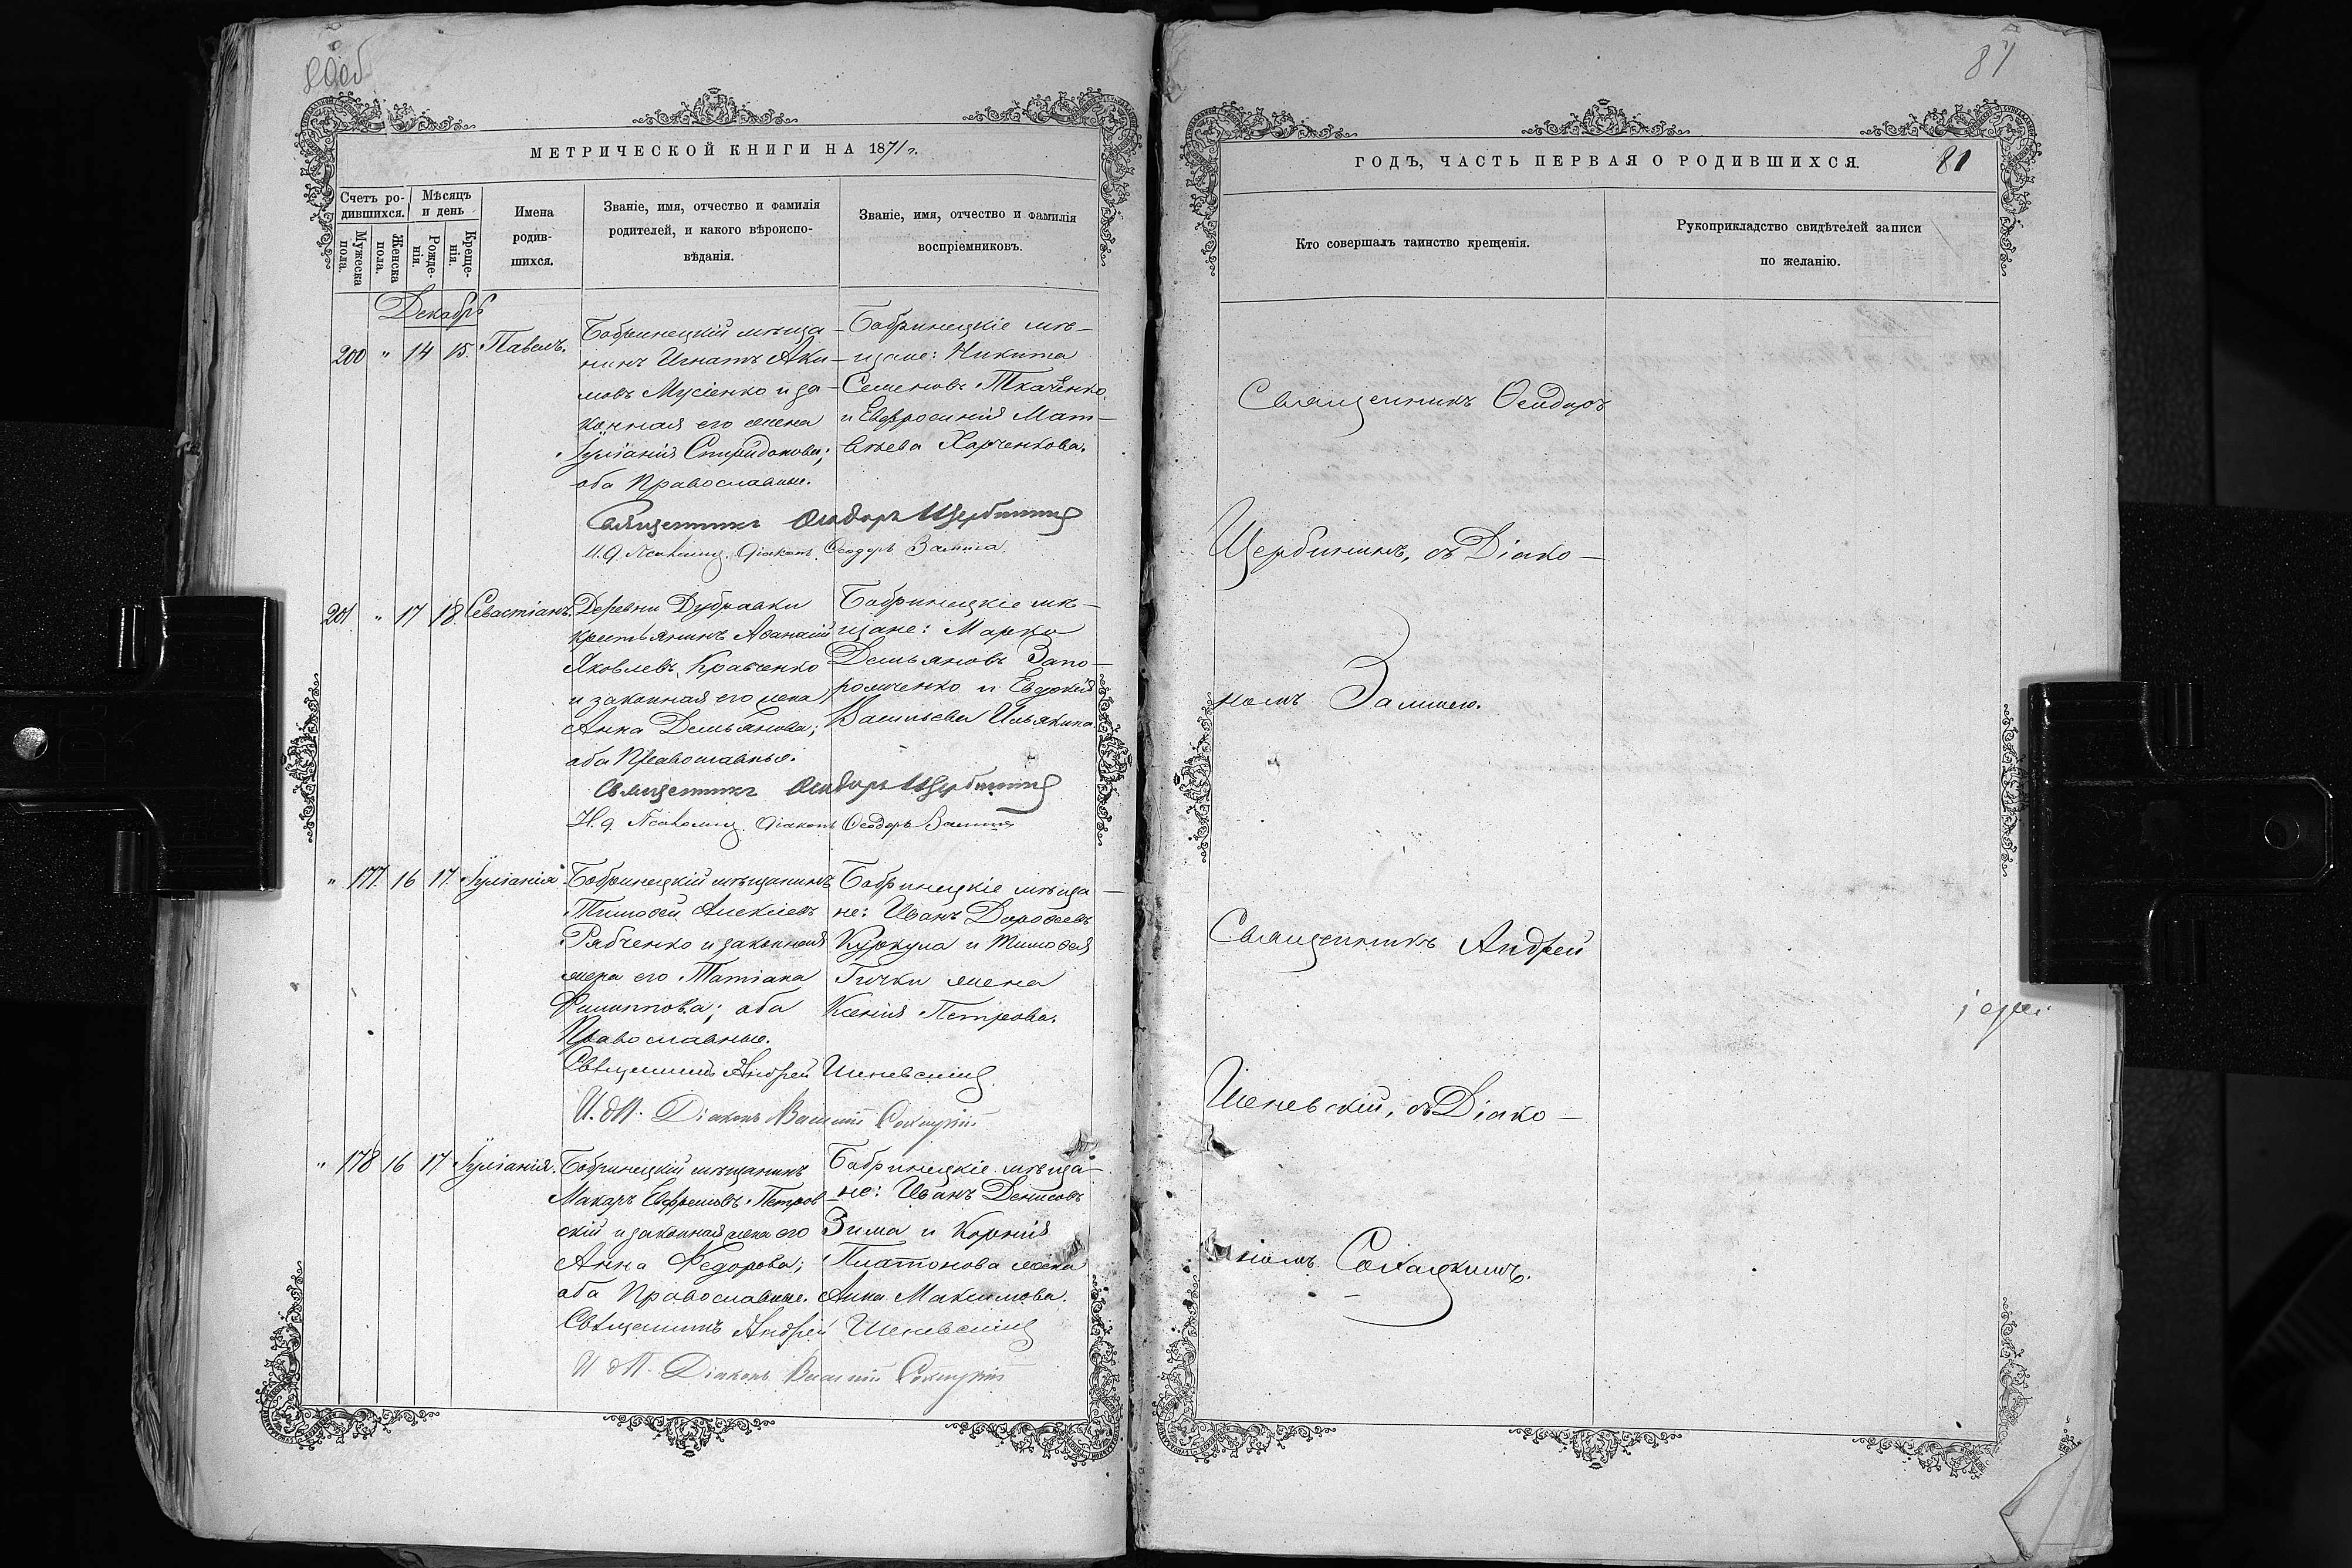 80об
МЕТРИЧЕСКОЙ КНИГИ НА 1871 г.
Счетъ ро-
дившихся.
Мужеска
пола.
Женска
пола.
Мѣсяцъ
и день
Рожде-
нія.
Креще-
нія.
Имена
родив-
шихся.
Званіе, имя, отчество и фамилія
родителей, и какого вѣроиспо-
вѣданія.
Званіе, имя, отчество и фамилія
воспріемниковъ.
Декабрь
200 " 14 15. Павелъ.
Бобринецкій мѣща-
нинъ Игнатъ Аки-
мовъ Мусіенко и за-
конная его жена
Іуліанія Спиридонова;
оба Православные.
Бобринецкіе мѣ-
щане: Никита
Семеновъ Ткаченко
и Евфросинія Мат-
вѣева Харченкова.
Священникъ Ѳеодоръ Щербининъ
И. д. Псаломщ. Діаконъ Ѳеодоръ
201 " 17 18 Севастіанъ.
Деревни Дубравки
крестьянинъ Аѳанасій
Яковлевъ Кравченко
и законная его жена
Анна Демьянова;
оба Православные.
Бобринецкіе мѣ-
щане: Марко
Демьяновъ Запо-
рожченко и Евдокія
Васильева Ильяхина
Священникъ Ѳеодоръ Щербининъ
И. д. Псаломщ. Діаконъ Ѳеодоръ
" 177. 16 17. Іуліанія
Бобринецкій мѣщанинъ
Тимоѳей Алексѣевъ
Рябченко и законная
жена его Татіана
Филиппова; оба
Православные.
Бобринецкіе мѣща-
не: Иванъ Дороѳеевъ
Куркула и Тимоѳея
Гички жена
Ксенія Петрова.
Священникъ Андрей
И. д. П. Діаконъ
" 178 16 17 Іуліанія.
Бобринецкій мѣщанинъ
Макаръ Евфремовъ Петров-
скій и законная жена его
Анна Федорова;
оба Православные.
Бобринецкіе мѣща-
не: Иванъ Денисовъ
Зима и Корнія
Платонова жена
Анна Максимова.
Священникъ Андрей
И. д. П. Діаконъ
81
ГОДЪ, ЧАСТЬ ПЕРВАЯ О РОДИВШИХСЯ.
81
Кто совершалъ таинство крещенія.
Рукоприкладство свидѣтелей записи
по желанію.
Священникъ Ѳеодоръ
Щербининъ, съ Діако-
номъ
Священникъ Андрей
съ Діако-
номъ